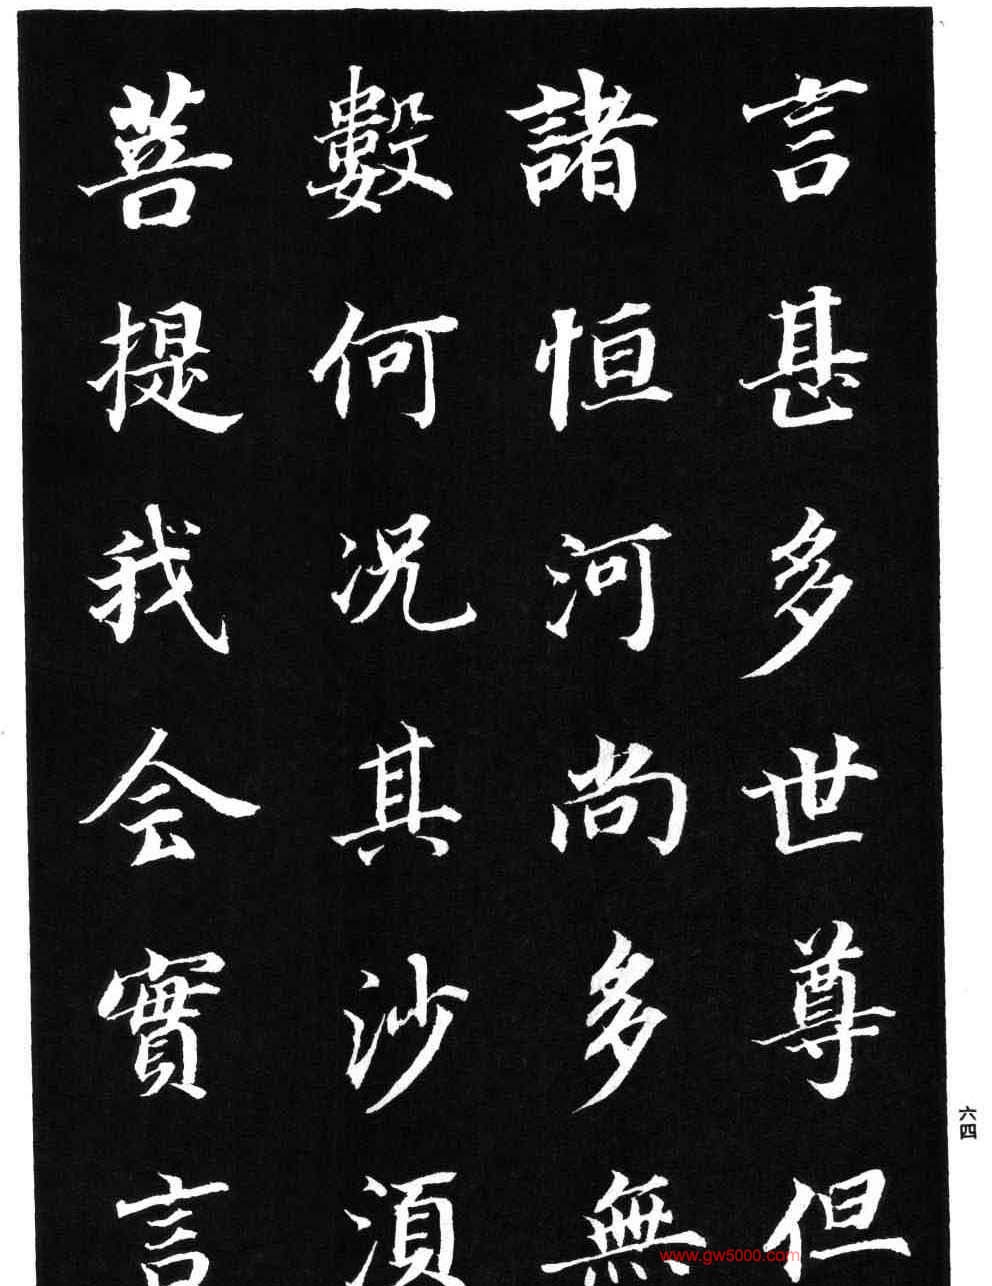 言甚多世尊但
諸恒河尚多無
數何況其沙須
菩提我今實言
六四
www.gw5000.com